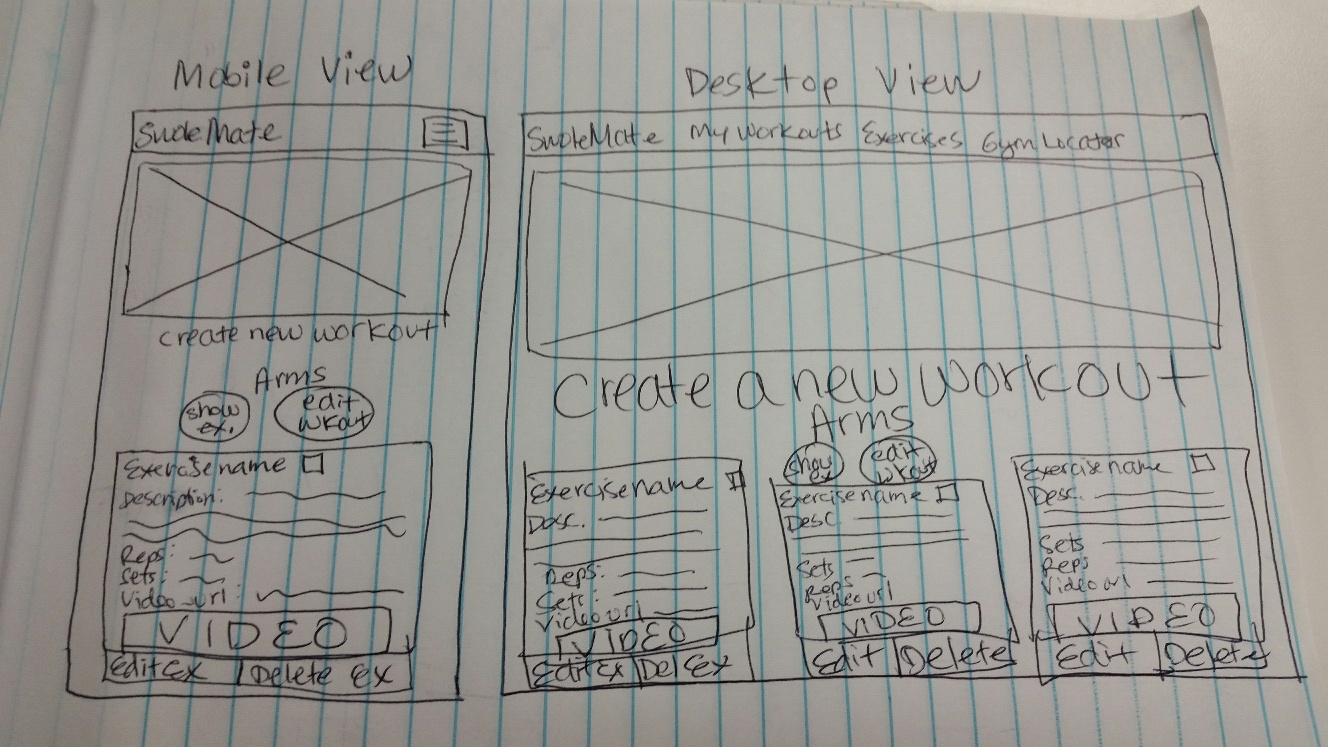 Mobile View
SwoleMate
create new workout
Arms
show ex.
edit wkout
Exercise name
Description:
Reps:
Sets:
Video-url:
VIDEO
Edit Ex
Delete Ex
Desktop View
SwoleMate My Workouts Exercises Gym Locator
Create a new workout
Arms
show ex
edit wkout
Exercise name
Desc.
Reps:
Sets:
Video url
VIDEO
Edit Ex
Del Ex
Exercise name
Desc
Sets
Reps
Video url
VIDEO
Edit
Delete
Exercise name
Desc.
Sets
Reps
Video url
VIDEO
Edit
Delete